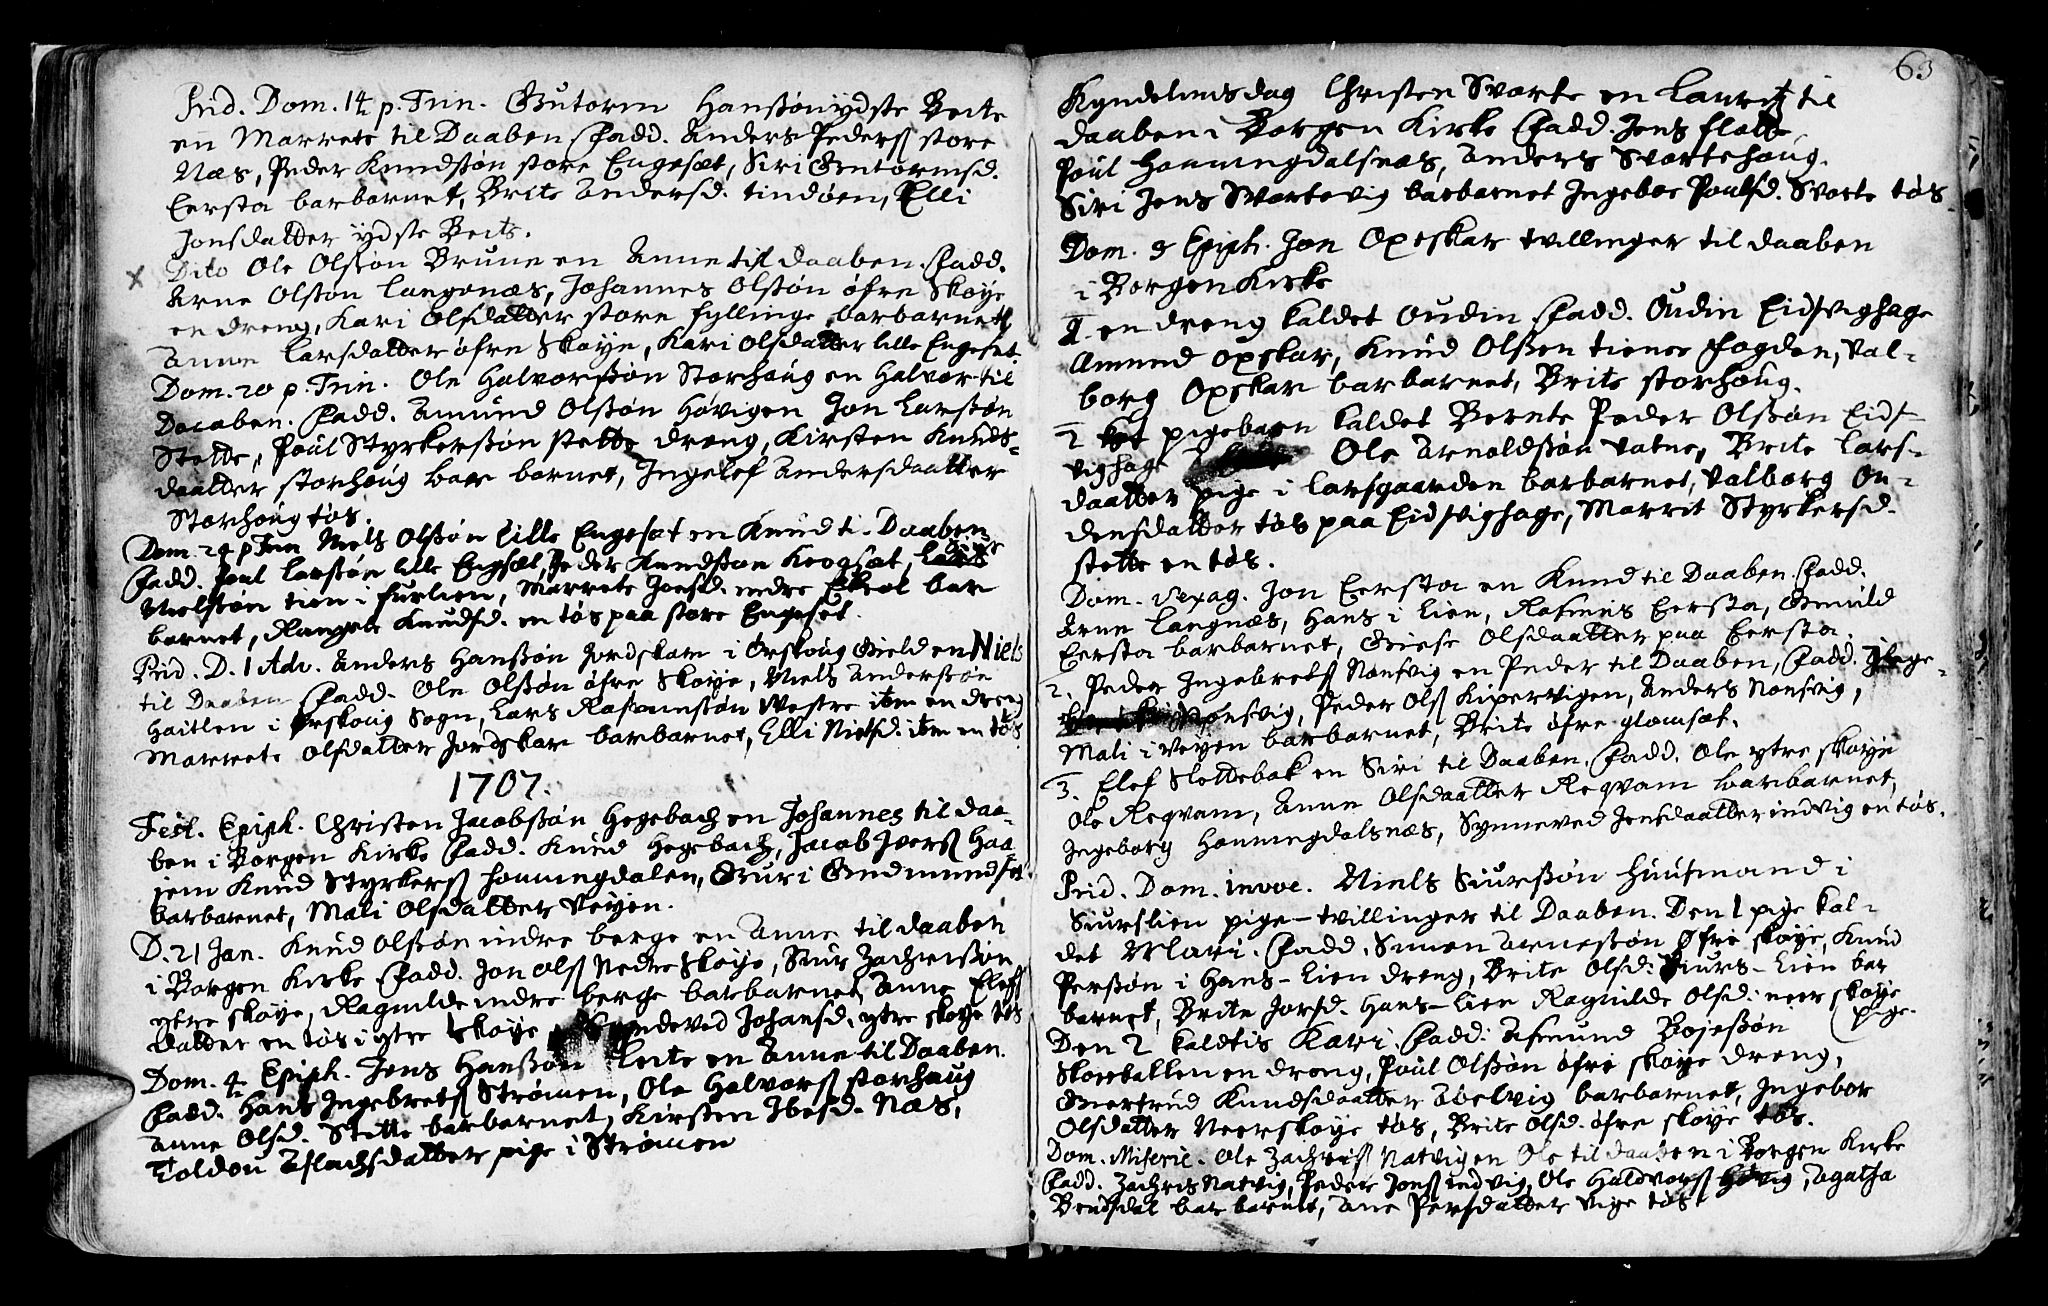 Prid. Dom. 14 p. Trin. Gutorm Hanssön ydste Beite
en Marrete til Daaben Fadd. Anders Peders store
Næs, Peder Knudssön store Engeset, Siri Gutormsd.
Eersta barbarnet, Brite Andersd. tindöen, Elli
Jonsdatter ydste Beite.
Dito Ole Olssön Brune en Anne til daaben. Fadd.
Arne Olssön Langenæs, Johannes Olssön öfre Skoye
en dreng, Kari Olsdatter store fyllinge barbarnet
Anne Larsdatter öfre Skoye, Kari Olsdatter lille Engeset.
Dom. 20 p. Trin. Ole Halvorssön Storhoug en Halvor til
Daaben. Fadd. Amund Olssön Hövigen Jon Larssön
Stette, Poul Styrkerssön stette dreng, Kirsten Knuds-
daatter storhoug bar barnet, Ingelef Andersdaatter
Storhoug tös.
Dom. 24 p Trin Niels Olssön Lille Engeset en Knud ti. Daaben
Fadd. Poul Larssön lille Engset, Peder Knudssön Krogset,
Nielssön tien i furlien, Marrete Jonsd. indre Ekrol bar
barnet, Rangele Knudsd. en tös paa store Engeset.
Prid. D. 1 Adv. Anders Hanssön Jordskar i Örskoug Gield en Niels
til Daaben Fadd. Ole Olssön öfre Skoye, Niels Anderssön
Haitlen i Örskoug Sogn, Lars Rasmussön Westre item en dreng
Marrete Olsdatter Jordskar barbarnet, Elli Nielsd. item en tös
1707.
Fest. Epiph. Christen Jacobssön Hegebach en Johannes til daa-
ben i Borgen Kirke Fadd. Knud Hegebach, Jacob Ivers Haa-
jem Knud Styrkers Honningdalen, Guri Gudmundset
barbarnet, Mali Olsdatter Veyen.
D. 21 Jan. Knud Olssön indre berge en Anne til daaben
i Borgen Kirke Fadd. Jon Ols Nedre Skoye, Siur Zachrissön
ytre skoye, Ragnilde indre berge barbarnet, Anne Elefs
datter en tös i ytre skoye, Synneved Johansd. ytre skoye tös
Dom. 4 Epiph. Jens Hanssön Leite en Anne til Daaben.
Fadd. Hans Ingebrets Strömen, Ole Halvors storhaug
Anne Olsd. Stette barbarnet, Kirsten Ibesd. Næs,
Toldou Aslachsdatter pige i Strömen
63
Kyndelmisdag Christen Svorte en Lauritz til
daaben i Borgen Kirke Fadd. Jens flotte
Poul Honningdalsnæs, Anders Svortehoug.
Siri Jens Svortevig barbarnet Ingebor Poulsd. Svorte tös.
Dom. 5 Epiph. Jon Opeskar tvillinger til daaben
i Borgen Kirke
1. en dreng kaldet Oudin Fadd. Oudin Eidsvighage
Amund opskar, Knud Olssen tiener Fogden, Val-
borg Opskar barbarnet, Brite storhoug.
2 pigebarn kaldet Bernte Peder Olssön Eids-
vighage Ole Arnoldssön Vatne, Brite Lars-
daatter pige i Larsgaarden barbarnet, Valborg On-
densdatter tös paa Eidsvighage, Marrit Styrkersd.
stette en tös.
Dom. Sexag. Jon Eersta en Knud til Daaben Fadd.
Arne Langnæs, Hans i Lien, Rasmus Eersta, Gunild
Eersta barbarnet, Giese Olsdaatter paa Eersta.
2. Peder Ingebrets Nonsvig en Peder til Daaben, Fadd. Inge-
Nonsvig, Peder Ols Kipervigen, Anders Nonsvig,
Mali i Veyen barbarnet, Brite öfre glomset.
3. Elef Slettebak en Siri til Daaben. Fadd. Ole ytre skoye
Ole Reqvam, Anne Olsdaatter Reqvam barbarnet,
Ingeborg Honningdalsnæs, Synneved Jensdaatter indvig en tös.
Prid. Dom. invoc. Niels Siurssön Huusmand i
Siurslien pige-tvillinger til Daaben. Den 1 pige kal-
det Mari. Fadd. Simen Arnessön Öfre skoye, Knud
Perssön i Hans-Lien dreng, Brite Olsd. Siurs-Lien bar
barnet, Brite Jorsd. Hans-Lien Ragnilde Olsd. neer skoye
pige.
Den 2 kaldtis Kari. Fadd. Asmund Bojessön
Skorballen en dreng, Poul Olssön öfre skoye dreng,
Giertrud Knudsdaatter Abelvig barbarnet, Ingebor
Olsdatter Neerskoye tös, Brite Olsd. öfre skoye tös.
Dom. Miseric. Ole Zachris Natvigen Ole til daaben i Borgen Kirke
Fadd. Zachris Natvig, Peder Jons indvig, Ole Haldvors Hövig, Agatha
Bendsdal bar barnet, Ane Persdatter Vige tös